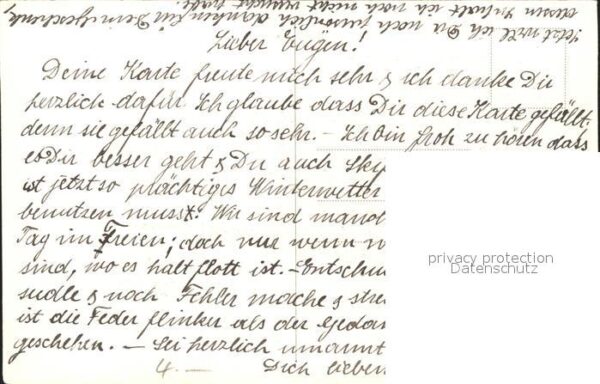 Lieber Eugen!
Deine Karte freute mich sehr & ich danke Dir
herzlich dafür. Ich glaube dass Dir diese Karte gefällt,
denn sie gefällt auch so sehr. – Ich bin froh zu hören dass
es Dir besser geht & Du auch Sky
ist jetzt so prächtiges Winterwetter
benutzen musst. Wir sind manch
Tag im Freien; doch nur wenn
sind, wo es halt flott ist. – Entschu
sudle & noch Fehler mache & stre
ist die Feder flinker als der Gedan
geschehen. – Sei herzlich umarmt
4. — Dich lieben
Jetzt will ich Dir noch persönlich danken für Dein Geschenk,
dessen Inhalt ich noch nicht versucht habe.
privacy protection
Datenschutz